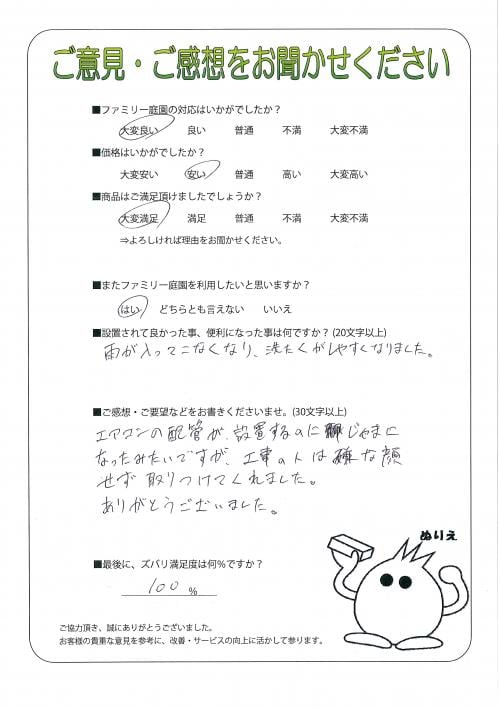 ご意見・ご感想をお聞かせください
■ファミリー庭園の対応はいかがでしたか？
大変良い 良い 普通 不満 大変不満
■価格はいかがでしたか？
大変安い 安い 普通 高い 大変高い
■商品はご満足頂けましたでしょうか？
大変満足 満足 普通 不満 大変不満
⇒よろしければ理由をお聞かせください。
■またファミリー庭園を利用したいと思いますか？
はい どちらとも言えない いいえ
■設置されて良かった事、便利になった事は何ですか？(20文字以上)
雨が入ってこなくなり、洗たくがしやすくなりました。
■ご感想・ご要望などをお書きくださいませ。(30文字以上)
エアコンの配管が、設置するのにじゃまに
なったみたいですが、工事の人は嫌な顔
せず取りつけてくれました。
ありがとうございました。
ぬりえ
■最後に、ズバリ満足度は何％ですか？
100 ％
ご協力頂き、誠にありがとうございました。
お客様の貴重な意見を参考に、改善・サービスの向上に活かして参ります。